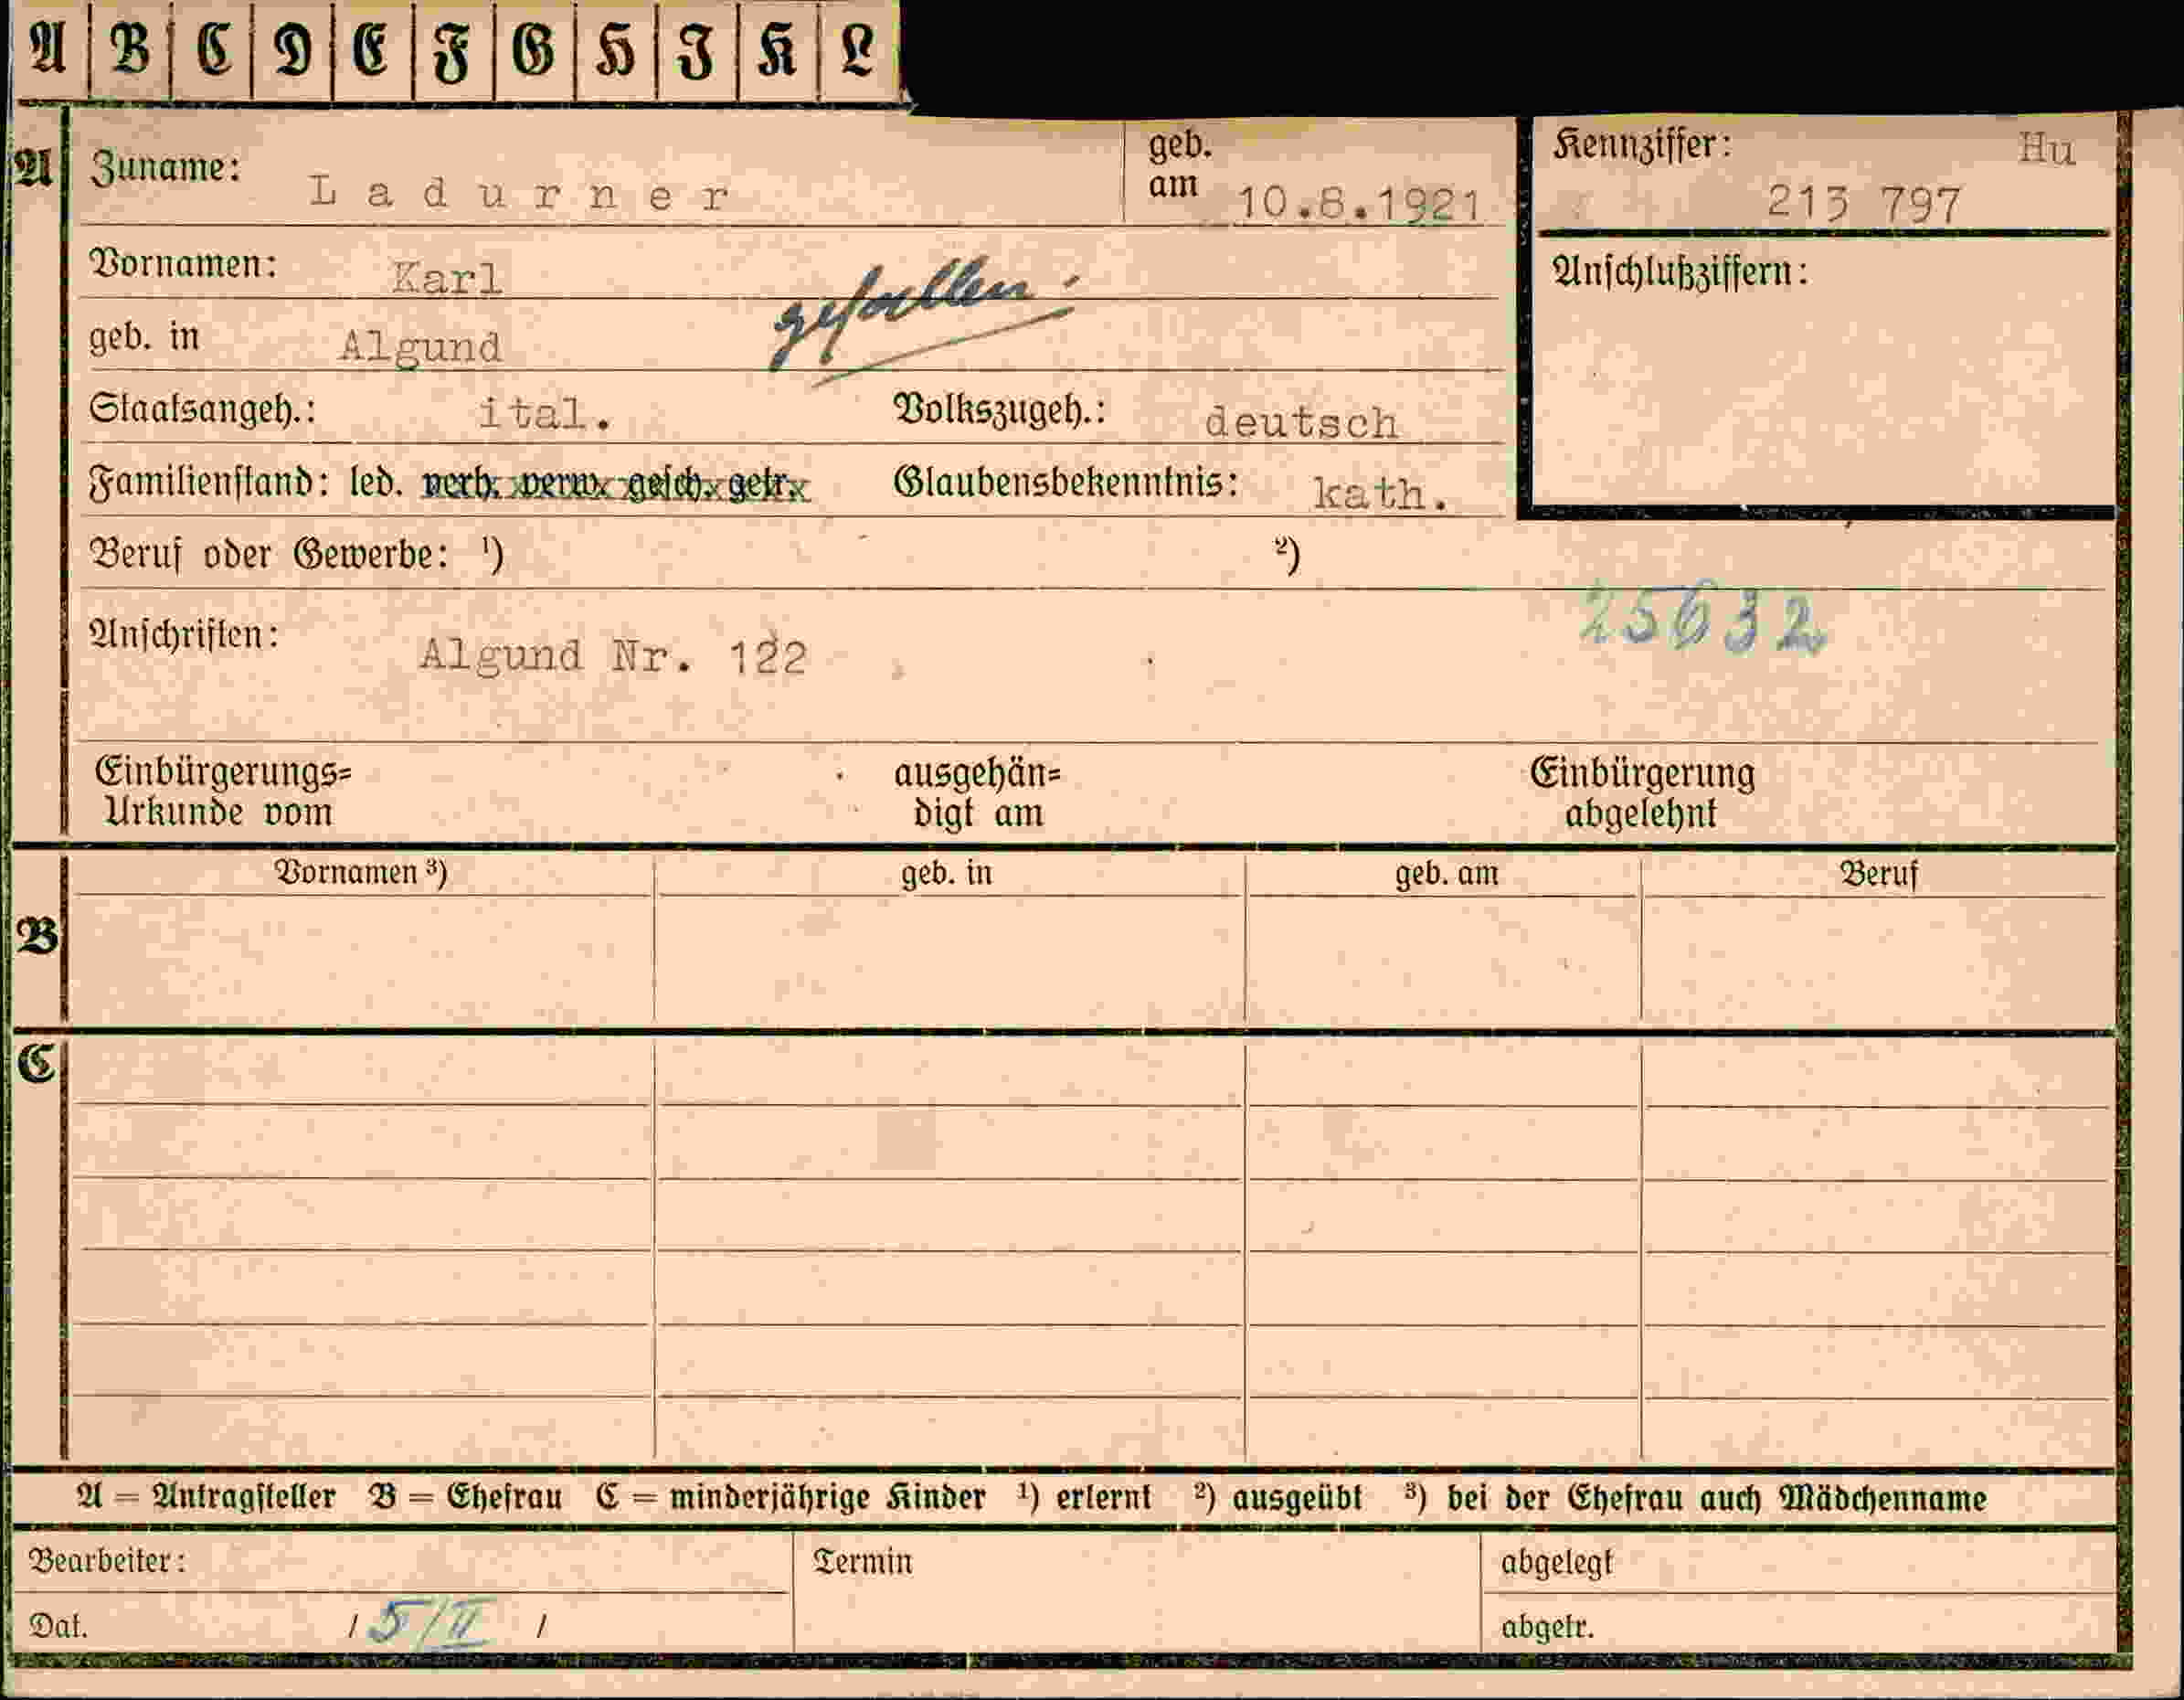 A B C D E F G H I K L
A Zuname: Ladurner geb. am 10.8.1921 Kennziffer: Hu
213 797
Vornamen: Karl gefallen. Anschlußziffern:
geb. in Algund
Staatsangeh.: ital. Volkszugeh.: deutsch
Familienstand: led. verh. verw. gesch. getr. Glaubensbekenntnis: kath.
Beruf oder Gewerbe: ¹) ²)
25632
Anschriften: Algund Nr. 122
Einbürgerungs= ausgehän= Einbürgerung
Urkunde vom digt am abgelehnt
Vornamen ³) geb. in geb. am Beruf
B
C
A = Antragsteller B = Ehefrau C = minderjährige Kinder ¹) erlernt ²) ausgeübt ³) bei der Ehefrau auch Mädchenname
Bearbeiter: Termin abgelegt
Dat. / 5/II / abgetr.